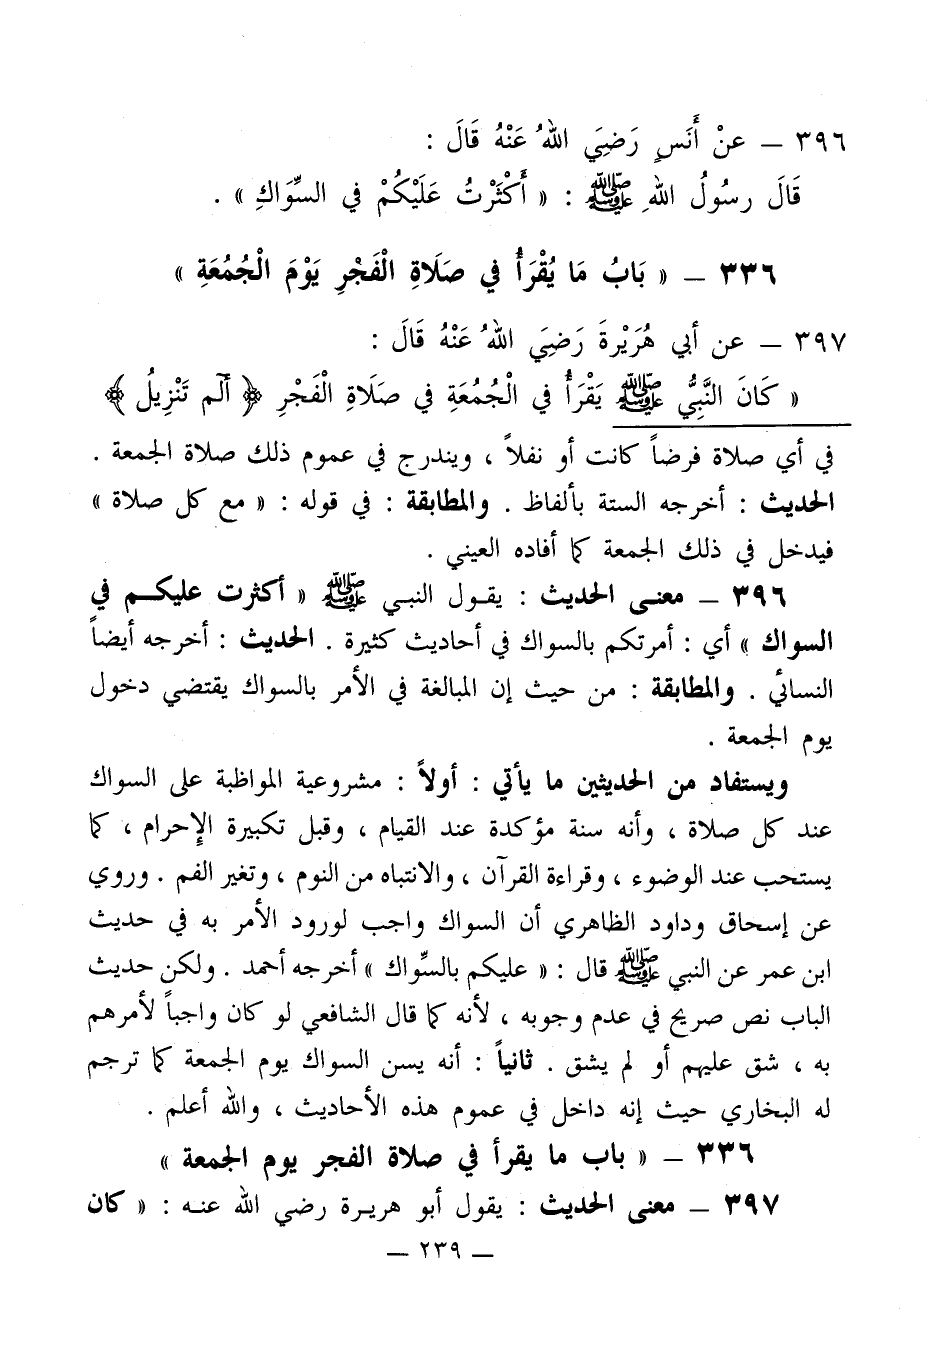 ٣٩٦ – عنْ أَنَسٍ رَضِيَ اللهُ عَنْهُ قَالَ :
قَالَ رسُولُ اللهِ ﷺ : « أَكْثَرْتُ عَلَيْكُمْ في السِّوَاكِ » .
٣٣٦ – « بَابُ مَا يُقْرَأُ في صَلَاةِ الْفَجْرِ يَوْمَ الْجُمُعَةِ »
٣٩٧ – عن أبي هُرَيْرةَ رَضِيَ اللهُ عَنْهُ قَالَ :
« كَانَ النَّبِيُّ ﷺ يَقْرَأُ في الْجُمُعَةِ في صَلَاةِ الْفَجْرِ ﴿ آلَم تَنْزِيلُ ﴾
في أي صلاة فرضاً كانت أو نفلاً ، ويندرج في عموم ذلك صلاة الجمعة .
الحديث : أخرجه الستة بألفاظ . والمطابقة : في قوله : « مع كل صلاة »
فيدخل في ذلك الجمعة كما أفاده العيني .
٣٩٦ – معنى الحديث : يقول النبي ﷺ « أكثرت عليكم في
السواك » أي : أمرتكم بالسواك في أحاديث كثيرة . الحديث : أخرجه أيضاً
النسائي . والمطابقة : من حيث إن المبالغة في الأمر بالسواك يقتضي دخول
يوم الجمعة .
ويستفاد من الحديثين ما يأتي : أولاً : مشروعية المواظبة على السواك
عند كل صلاة ، وأنه سنة مؤكدة عند القيام ، وقبل تكبيرة الإحرام ، كما
يستحب عند الوضوء ، وقراءة القرآن ، والانتباه من النوم ، وتغير الفم . وروي
عن إسحاق وداود الظاهري أن السواك واجب لورود الأمر به في حديث
ابن عمر عن النبي ﷺ قال : « عليكم بالسِّواك » أخرجه أحمد . ولكن حديث
الباب نص صريح في عدم وجوبه ، لأنه كما قال الشافعي لو كان واجباً لأمرهم
به ، شق عليهم أو لم يشق . ثانياً : أنه يسن السواك يوم الجمعة كما ترجم
له البخاري حيث إنه داخل في عموم هذه الأحاديث ، والله أعلم .
٣٣٦ – « باب ما يقرأ في صلاة الفجر يوم الجمعة »
٣٩٧ – معنى الحديث : يقول أبو هريرة رضي الله عنه : « كان
– ٢٣٩ –